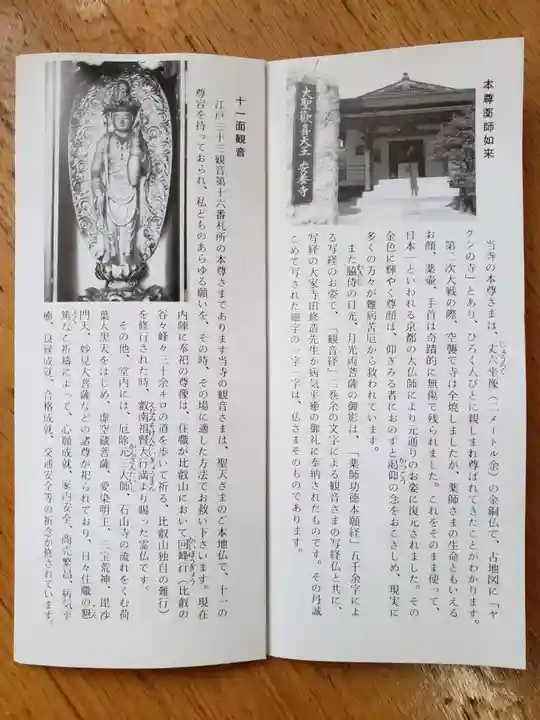 本尊薬師如来
大聖歓喜天王 安養寺
当寺の本尊さまは、丈六坐像（二メートル余）の金銅仏で、古地図に「ヤ
クシの寺」とあり、ひろくんびとに親しまれ尊ばれてきたことがわかります。
第二次大戦の際、空襲で寺は全焼しましたが、薬師さまの生命ともいえる
お顔、薬壷、手首は奇蹟的に無傷で残られました。これをそのまま使って、
日本一といわれる京都の大仏師により元通りのお姿に復元されました。その
金色に輝やく尊顔は、仰ぎみる者におのずと超仰の念をおこさしめ、現実に
多くの方々が難病苦厄から救われています。
また脇侍の日光、月光両菩薩の御影は、「薬師功徳本願経」五千余字によ
る写経のお姿で、「観音経」三巻余の文字による観音さまの写経仏と共に、
写経の大家寺田修造先生が病気平癒の御礼に奉納されたものです。その丹誠
こめて写された細字の一字一字は、仏さまそのものであります。
十一面観音
江戸三十三観音第十六番札所の本尊さまであります当寺の観音さまは、聖天さまのご本地仏で、十一の
尊容を持っておられ、私どものあらゆる願いを、その時、その場に適した方法でお救い下さいます。現在
内陣に奉祀の尊像は、住職が比叡山において回峰行（比叡の
谷々峰々三十余キロの道を歩いて祈る、比叡山独自の難行）
を修行された時、叡南祖賢大行満より賜った霊仏です。
その他、堂内には、厄除元三大師、石山寺の流れをくむ荷
葉大黒天をはじめ、虚空蔵菩薩、愛染明王、三宝荒神、毘沙
門天、妙見大菩薩などの諸尊が祀られており、日々住職の懇
篤なご祈祷によって、心願成就、家内安全、商売繁昌、病気平
癒、良縁成就、合格成就、交通安全等の祈念が修されています。